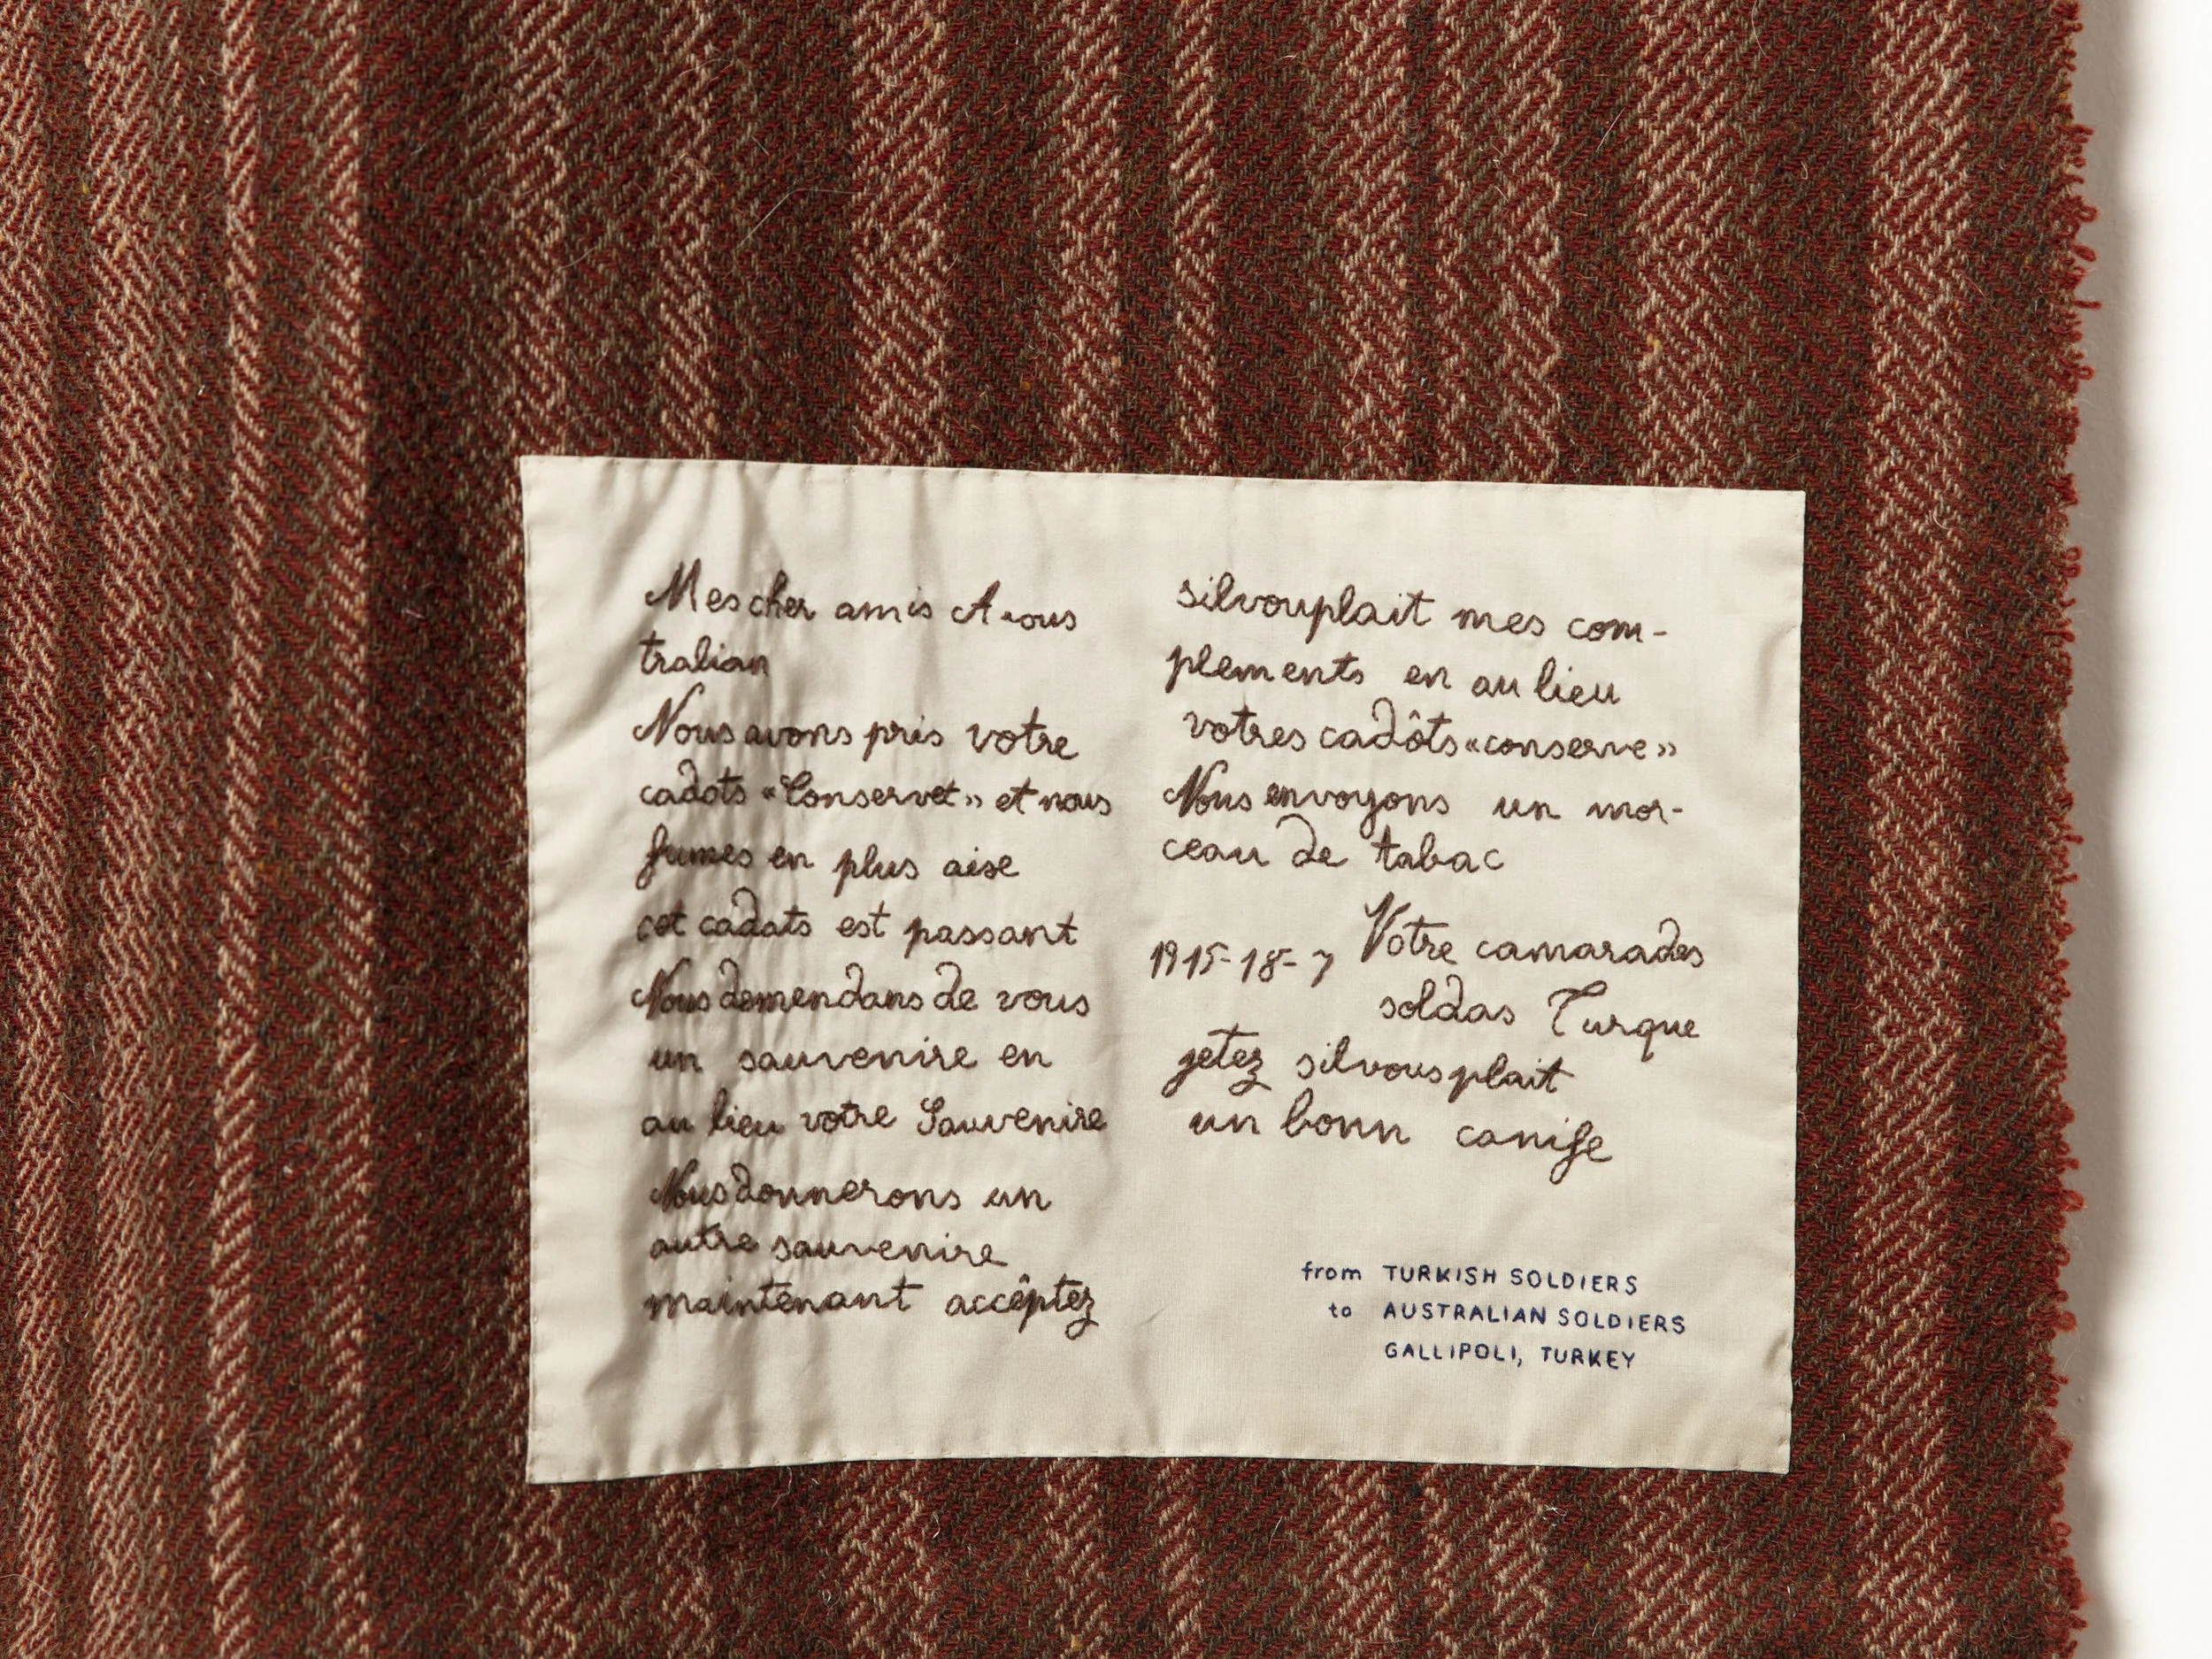 Mes cher amis A.ous
tralian
Nous avons pris votre
cadots «Conservet» et nous
fumes en plus aise
cet cadats est passant
Nous demendans de vous
un sauvenire en
au lieu votre Sauvenire
Nous donnerons un
autre sauvenire
maintenant accêptez
silvouplait mes com-
plements en au lieu
votres cadôts «conserve»
Nous envoyons un mor-
ceau de tabac
1915-18-7 Votre camarades
soldas Turque
jetez silvousplait
un bonn canife
from TURKISH SOLDIERS
to AUSTRALIAN SOLDIERS
GALLIPOLI, TURKEY